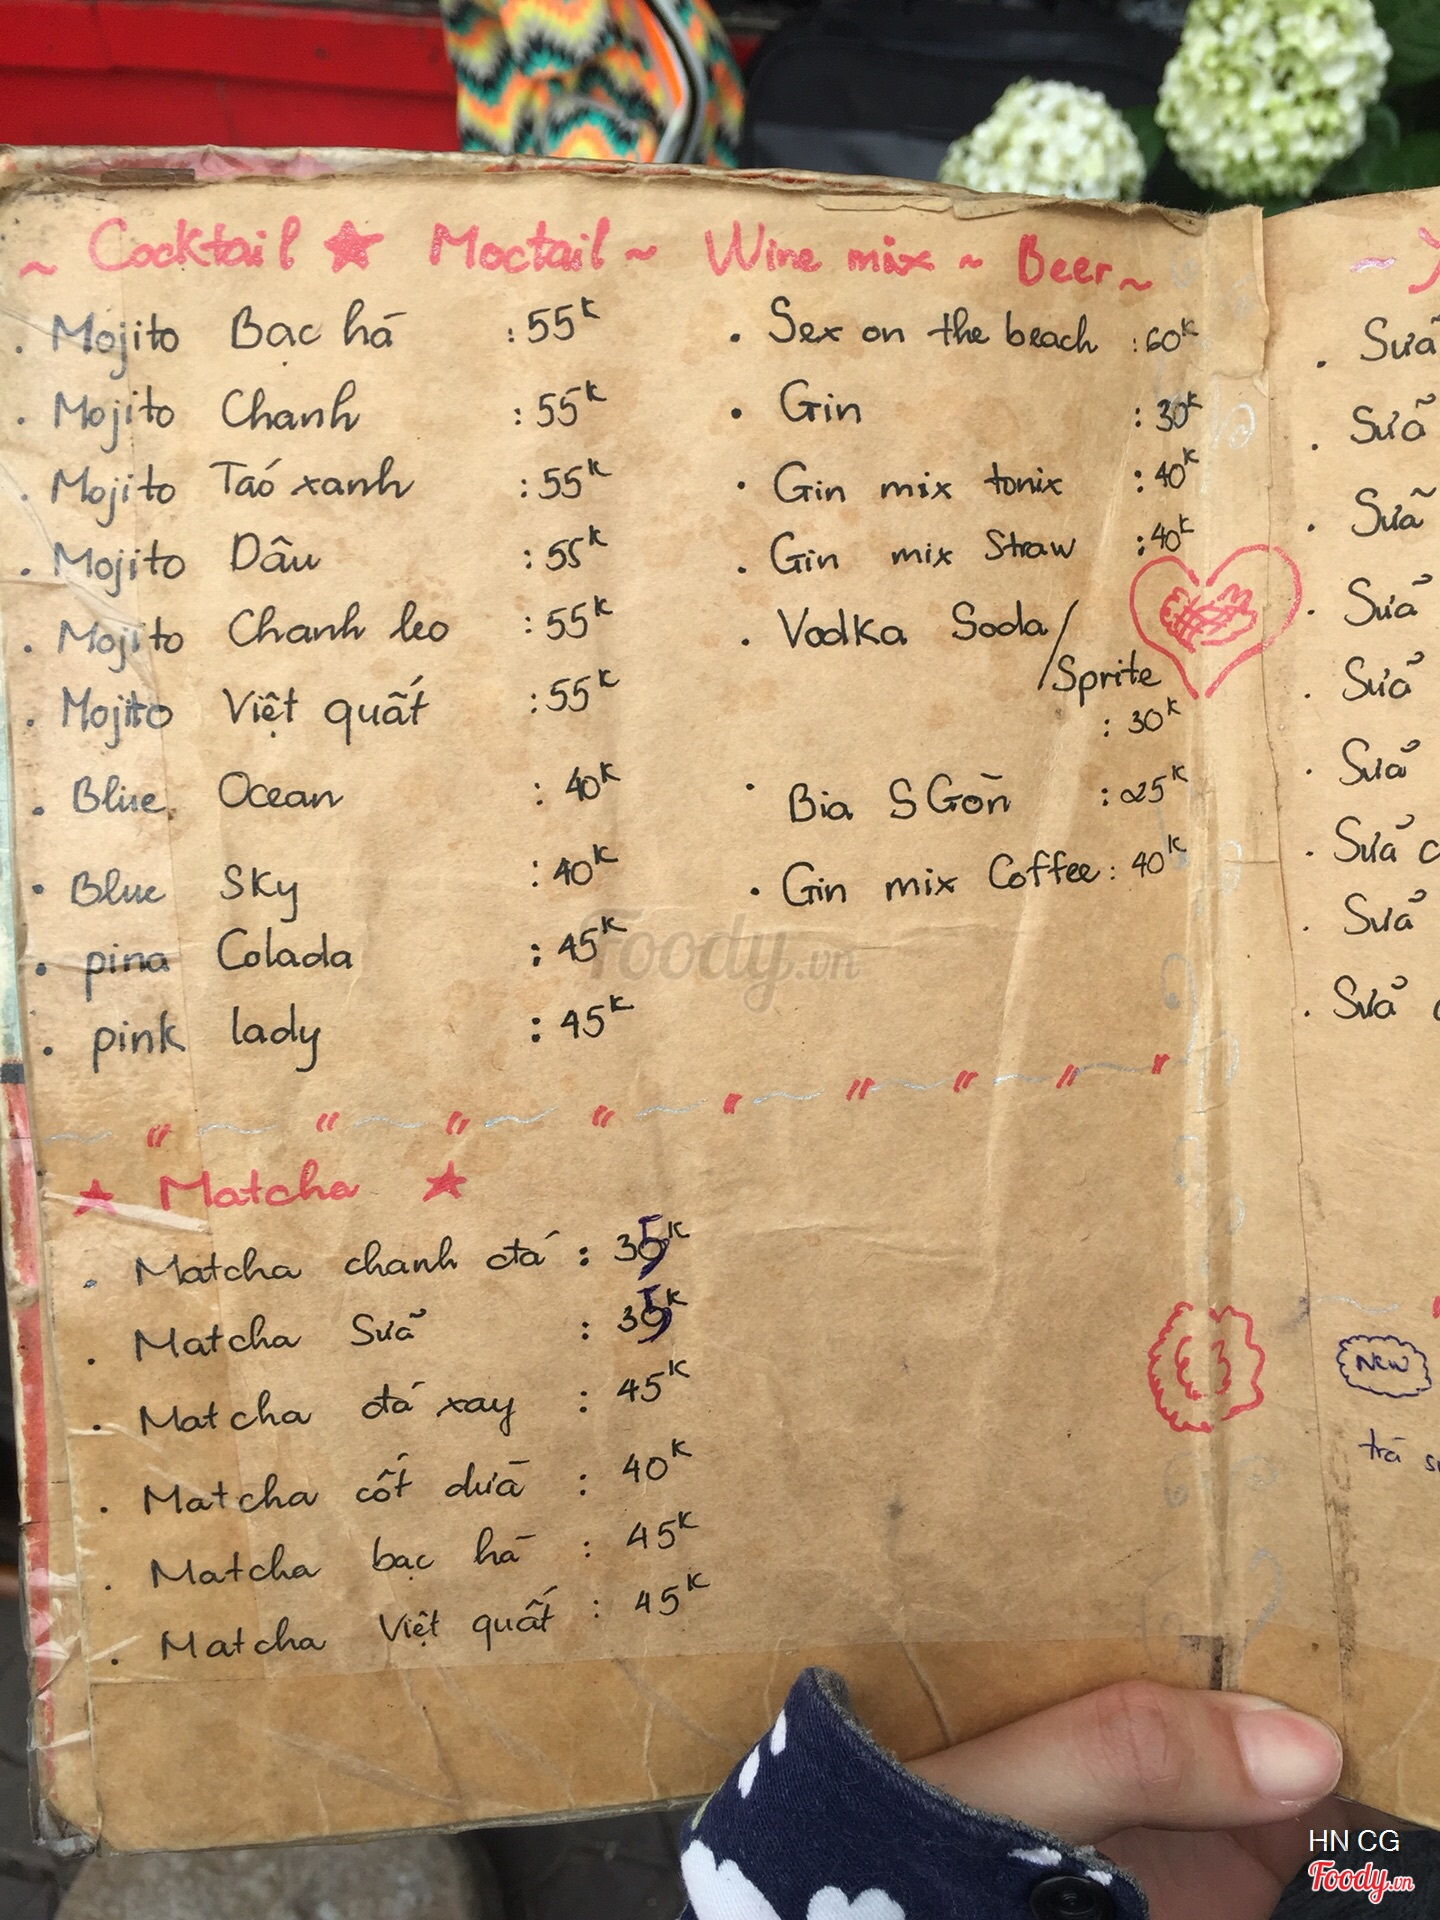 ~ Cocktail ★ Moctail ~ Wine mix ~ Beer ~
. Mojito Bạc hà : 55K
. Mojito Chanh : 55K
. Mojito Táo xanh : 55K
. Mojito Dâu : 55K
. Mojito Chanh leo : 55K
. Mojito Việt quất : 55K
. Blue Ocean : 40K
. Blue Sky : 40K
. pina Colada : 45K
. pink lady : 45K
. Sex on the beach : 60K
. Gin : 30K
. Gin mix tonix : 40K
. Gin mix Straw : 40K
. Vodka Soda/
/Sprite
: 30K
. Bia SGòn : 25K
. Gin mix Coffee : 40K
★ Matcha ★
. Matcha chanh đá : 35K
. Matcha Sữa : 35K
. Matcha đá xay : 45K
. Matcha cốt dừa : 40K
. Matcha bạc hà : 45K
. Matcha Việt quất : 45K
. Sữa
. Sữa
. Sữa
. Sữa
. Sữa
. Sữa
. Sữa
. Sữa
. Sữa
NEW
trà
Foody.vn
HN CG
Foody.vn